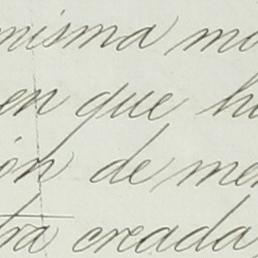 misma mo
en que ho
ión de me
tra creada